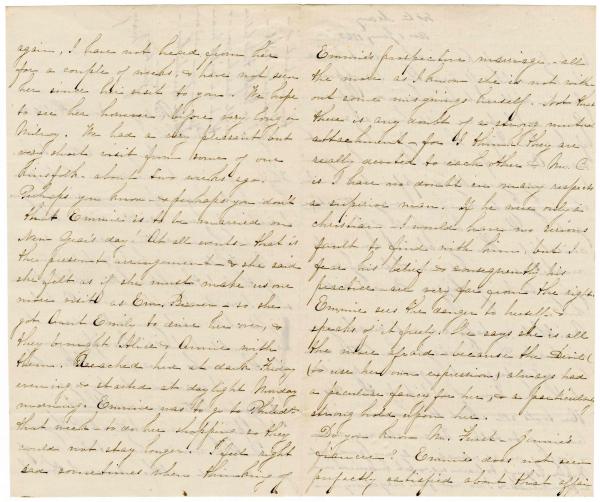 again, I have not heard from her
for a couple of weeks, & have not seen
her since her visit to you. We hope
to see her however before very long in
Milroy. We had a very pleasant but
very short visit from some of our
kinsfolk about two weeks ago.
Perhaps you know - & perhaps you don't
that Emmie is to be married on
New Year's day. At all events - that is
the present arrangement - & she said
she felt as if she must make us one
more visit as Em. - so she
got Aunt Emily to drive her over, &
they brought Alice & Annie with
them. Reached here at dark Friday
evening & started at daylight Monday
morning. Emmie was to go to Philad.
that week - to do her shopping so they
could not stay longer. I feel right
sad sometimes when thinking of
Emmie's prospective marriage - all
the more as I know she is not with
out some misgivings herself. Not that
there is any doubt of a strong mutual
attachment - for I think they are
really devoted to each other & Mr. C.
is I have no doubt in many respects
a superior man. If he were only a
christian I would have no serious
fault to find with him, but I
fear his belief & consequently his
practice are very far from the right.
Emmie sees the danger to herself &
speaks of it freely. She says she is all
the more afraid - because the Devil
(to use her own expression) always had
a peculiar fancy for her, & a particularly
strong hold upon her.
Do you know Mr. - Jennie's
fiancee? Emmie does not seem
perfectly satisfied about that affair